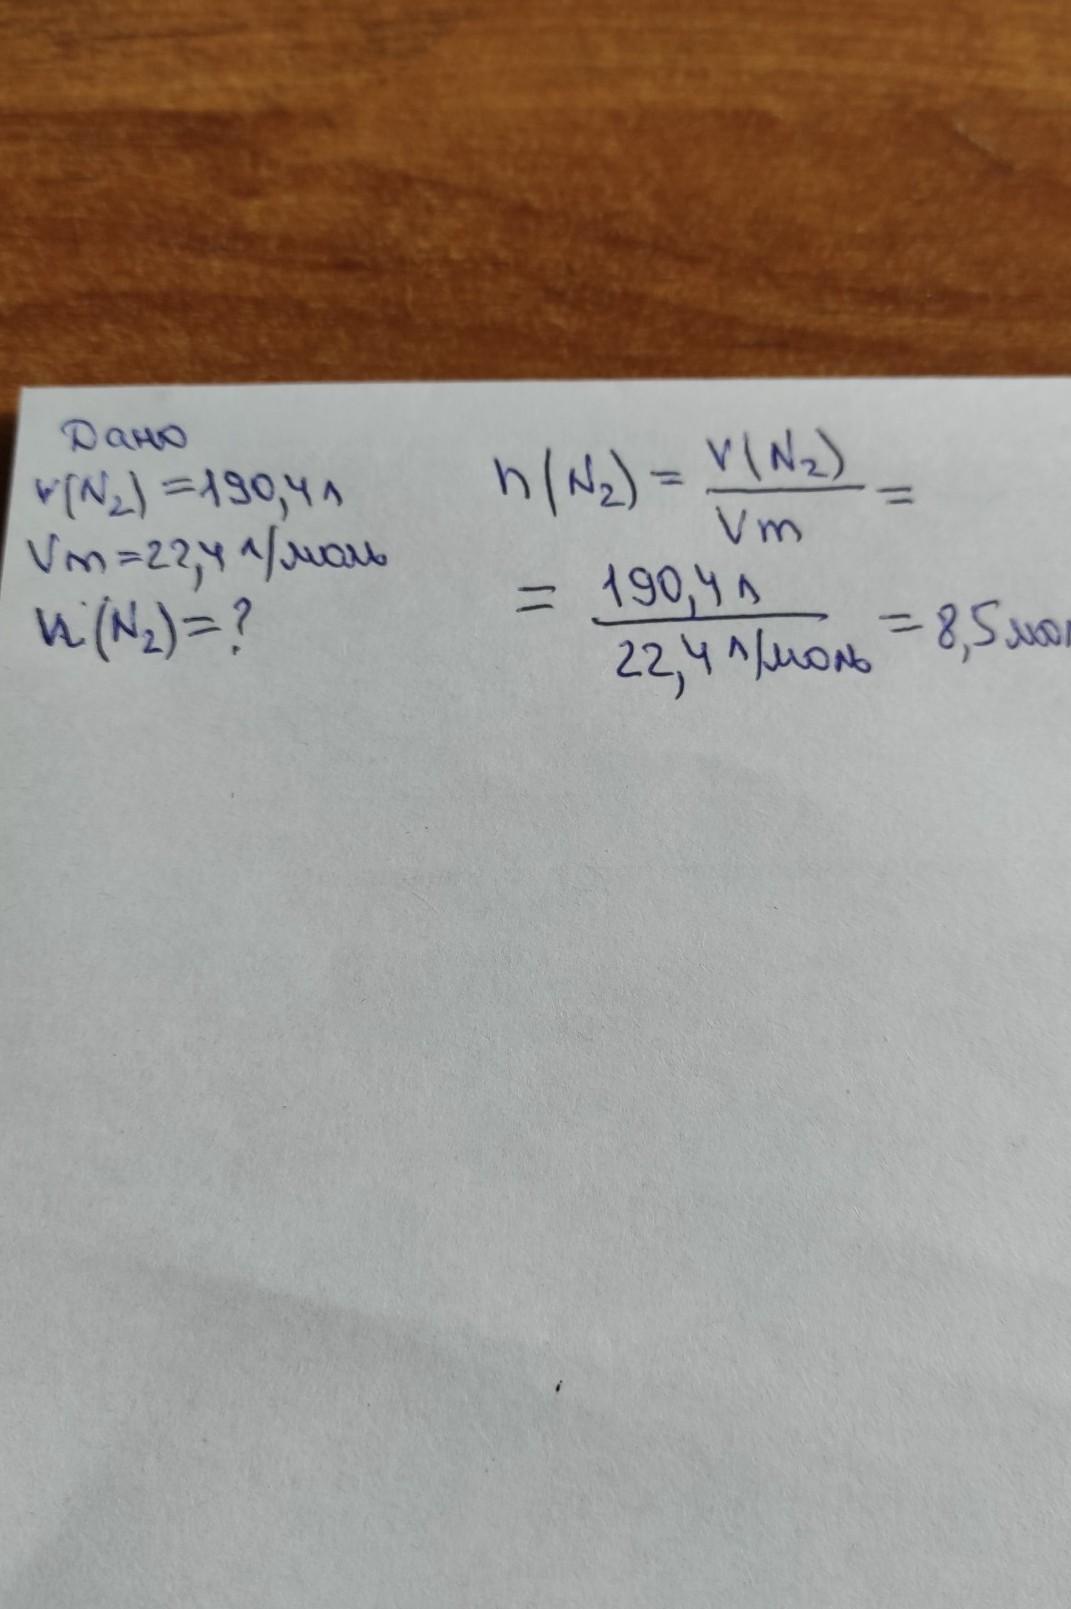 Дано
v(N₂) = 190,4 л
Vm = 22,4 л/моль
n(N₂) = ?
n(N₂) = V(N₂) / Vm =
= 190,4 л / 22,4 л/моль = 8,5 мол